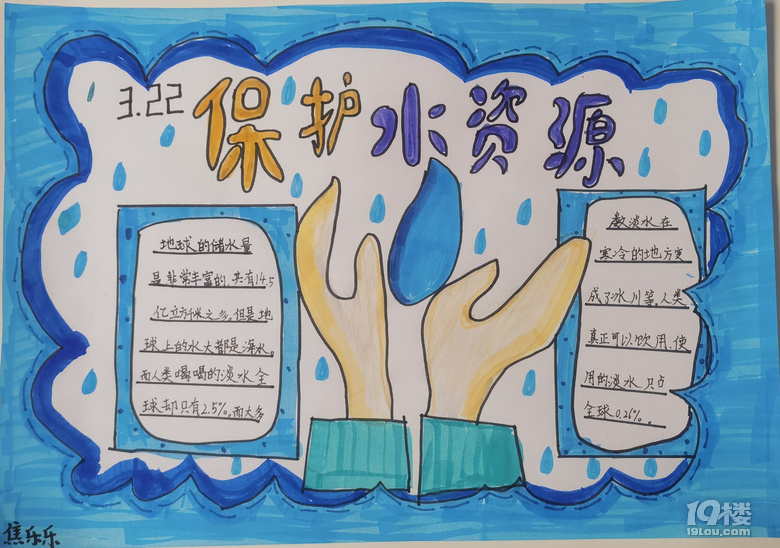 3.22 保护水资源
地球的储水量
是非常丰富的,共有14.5
亿立方千米之多。但是地
球上的水大都是海水。
而人类喝喝的淡水全
球却只有2.5%。而大多
数淡水在
寒冷的地方变
成了冰川等。人类
真正可以饮用、使
用的淡水只占
全球0.26%。
焦乐乐
19楼
19lou.com